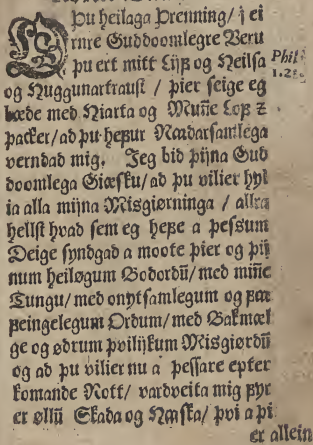 Þu heilaga Þrenning/ j ei
rnre Guddoomlegre Veru
þu ert mitt Lijf og Heilsa
og Huggunartraust / þier seige eg
bæde med Hiarta og Muñe Lof z
þacker/ ad þu hefur Naadarsamlega
verndad mig. Jeg bid þijna Gud
doomlega Giæsku/ ad þu vilier hyl
ia alla mijna Misgiørninga / allra
hellst hvad sem eg hefe a þessum
Deige syndgad a moote þier og þij
num heiløgum Bodordū/ med miñe
Tungu/ med onytsamlegum og
feingelegum Ordum/ med Bakmæl
ge og ødrum þvilijkum Misgiørdū
og ad þu vilier nu a þessare epter
komande Nott/ vardveita mig fyr
er øllū Skada og Haska/ þvi a þi
er allein
Phil
1.21.